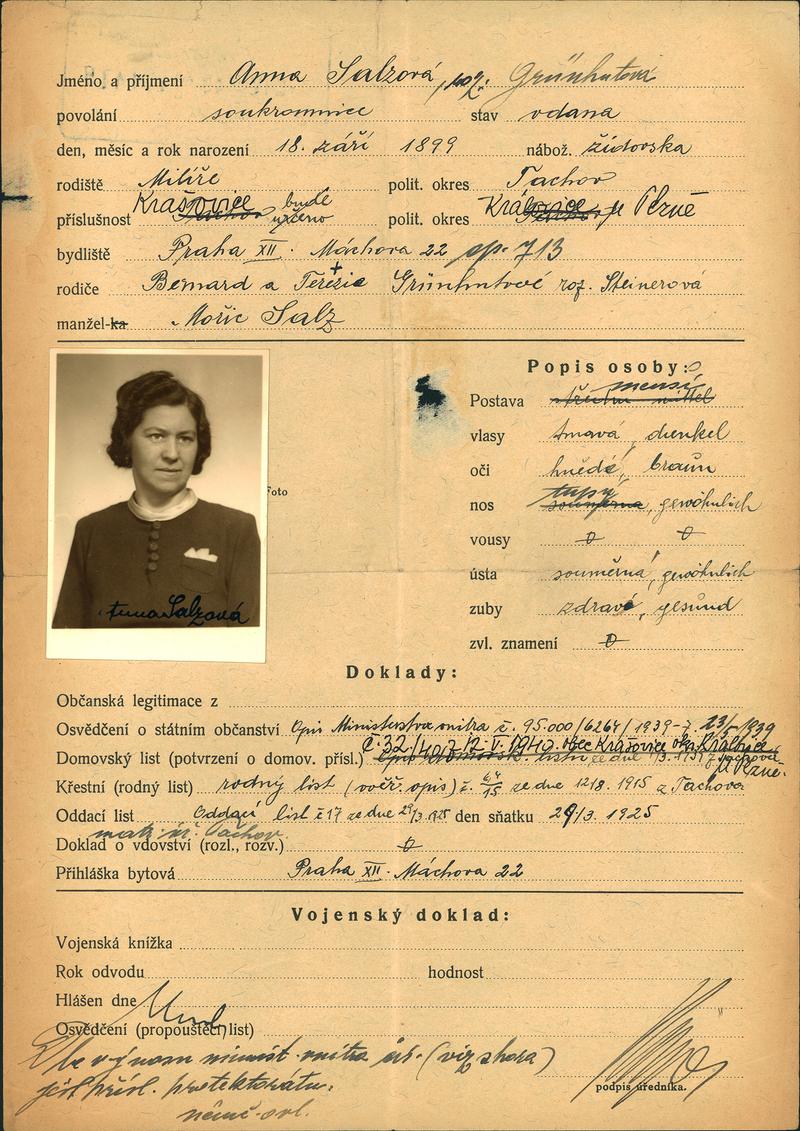 Jméno a příjmení Anna Salzová, roz. Grünhutová
povolání soukromnice stav vdana
den, měsíc a rok narození 18. září 1899 nábož. židovska
rodiště Milíře polit. okres Tachov
příslušnost Krašovice Tachov bude určeno polit. okres Kralovice u Plzně
bydliště Praha XII. Máchova 22 čp. 713
rodiče Bernard a Terezie + Grünhutové roz. Steinerová
manžel-ka Mořic Salz
Popis osoby:
Postava menší střední mittel
vlasy tmavá, dunkel
oči hnědé, braun
Foto
nos tupý souměrna, gewöhnlich
vousy
ústa souměrná, gewöhnlich
Anna Salzová
zuby zdravé, gesund
zvl. znamení
Doklady:
Občanská legitimace z
Osvědčení o státním občanství Opis Ministerstva vnitra č. 95.000/6264/1939-7. 23/5-1939
Domovský list (potvrzení o domov. přísl.) č. 32/40 z 12. V. 1940. obec Krašovice okr. Kralovice u Plzně.
Křestní (rodný list) rodný list (ověř. opis) č. 64/15 ze dne 12/8. 1915 z Tachova
Oddací list Oddací list č 17 ze dne 29/3. 1925 den sňatku 29/3. 1925
mat. úř. Tachov.
Doklad o vdovství (rozl., rozv.)
Přihláška bytová Praha XII. Máchova 22
Vojenský doklad:
Vojenská knížka
Rok odvodu hodnost
Hlášen dne
Osvědčení (propouštěcí list)
Dle výnosu minist. vnitra (viz shora)
jest přísl. protektorátu.
podpis úředníka.